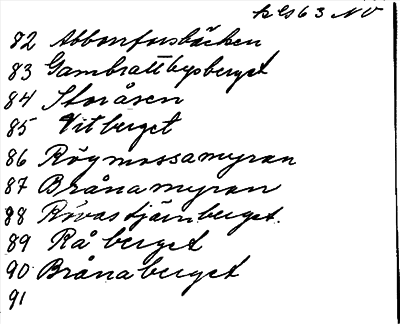 kls 63 NV
82 Abborrforsbäcken
83 Gambrattbysberget
84 Storåsen
85 Vitberget
86 Rögmossamyran
87 Brånamyran
88 Rivastjärnberget.
89 Rå berget
90 Brånaberget
91